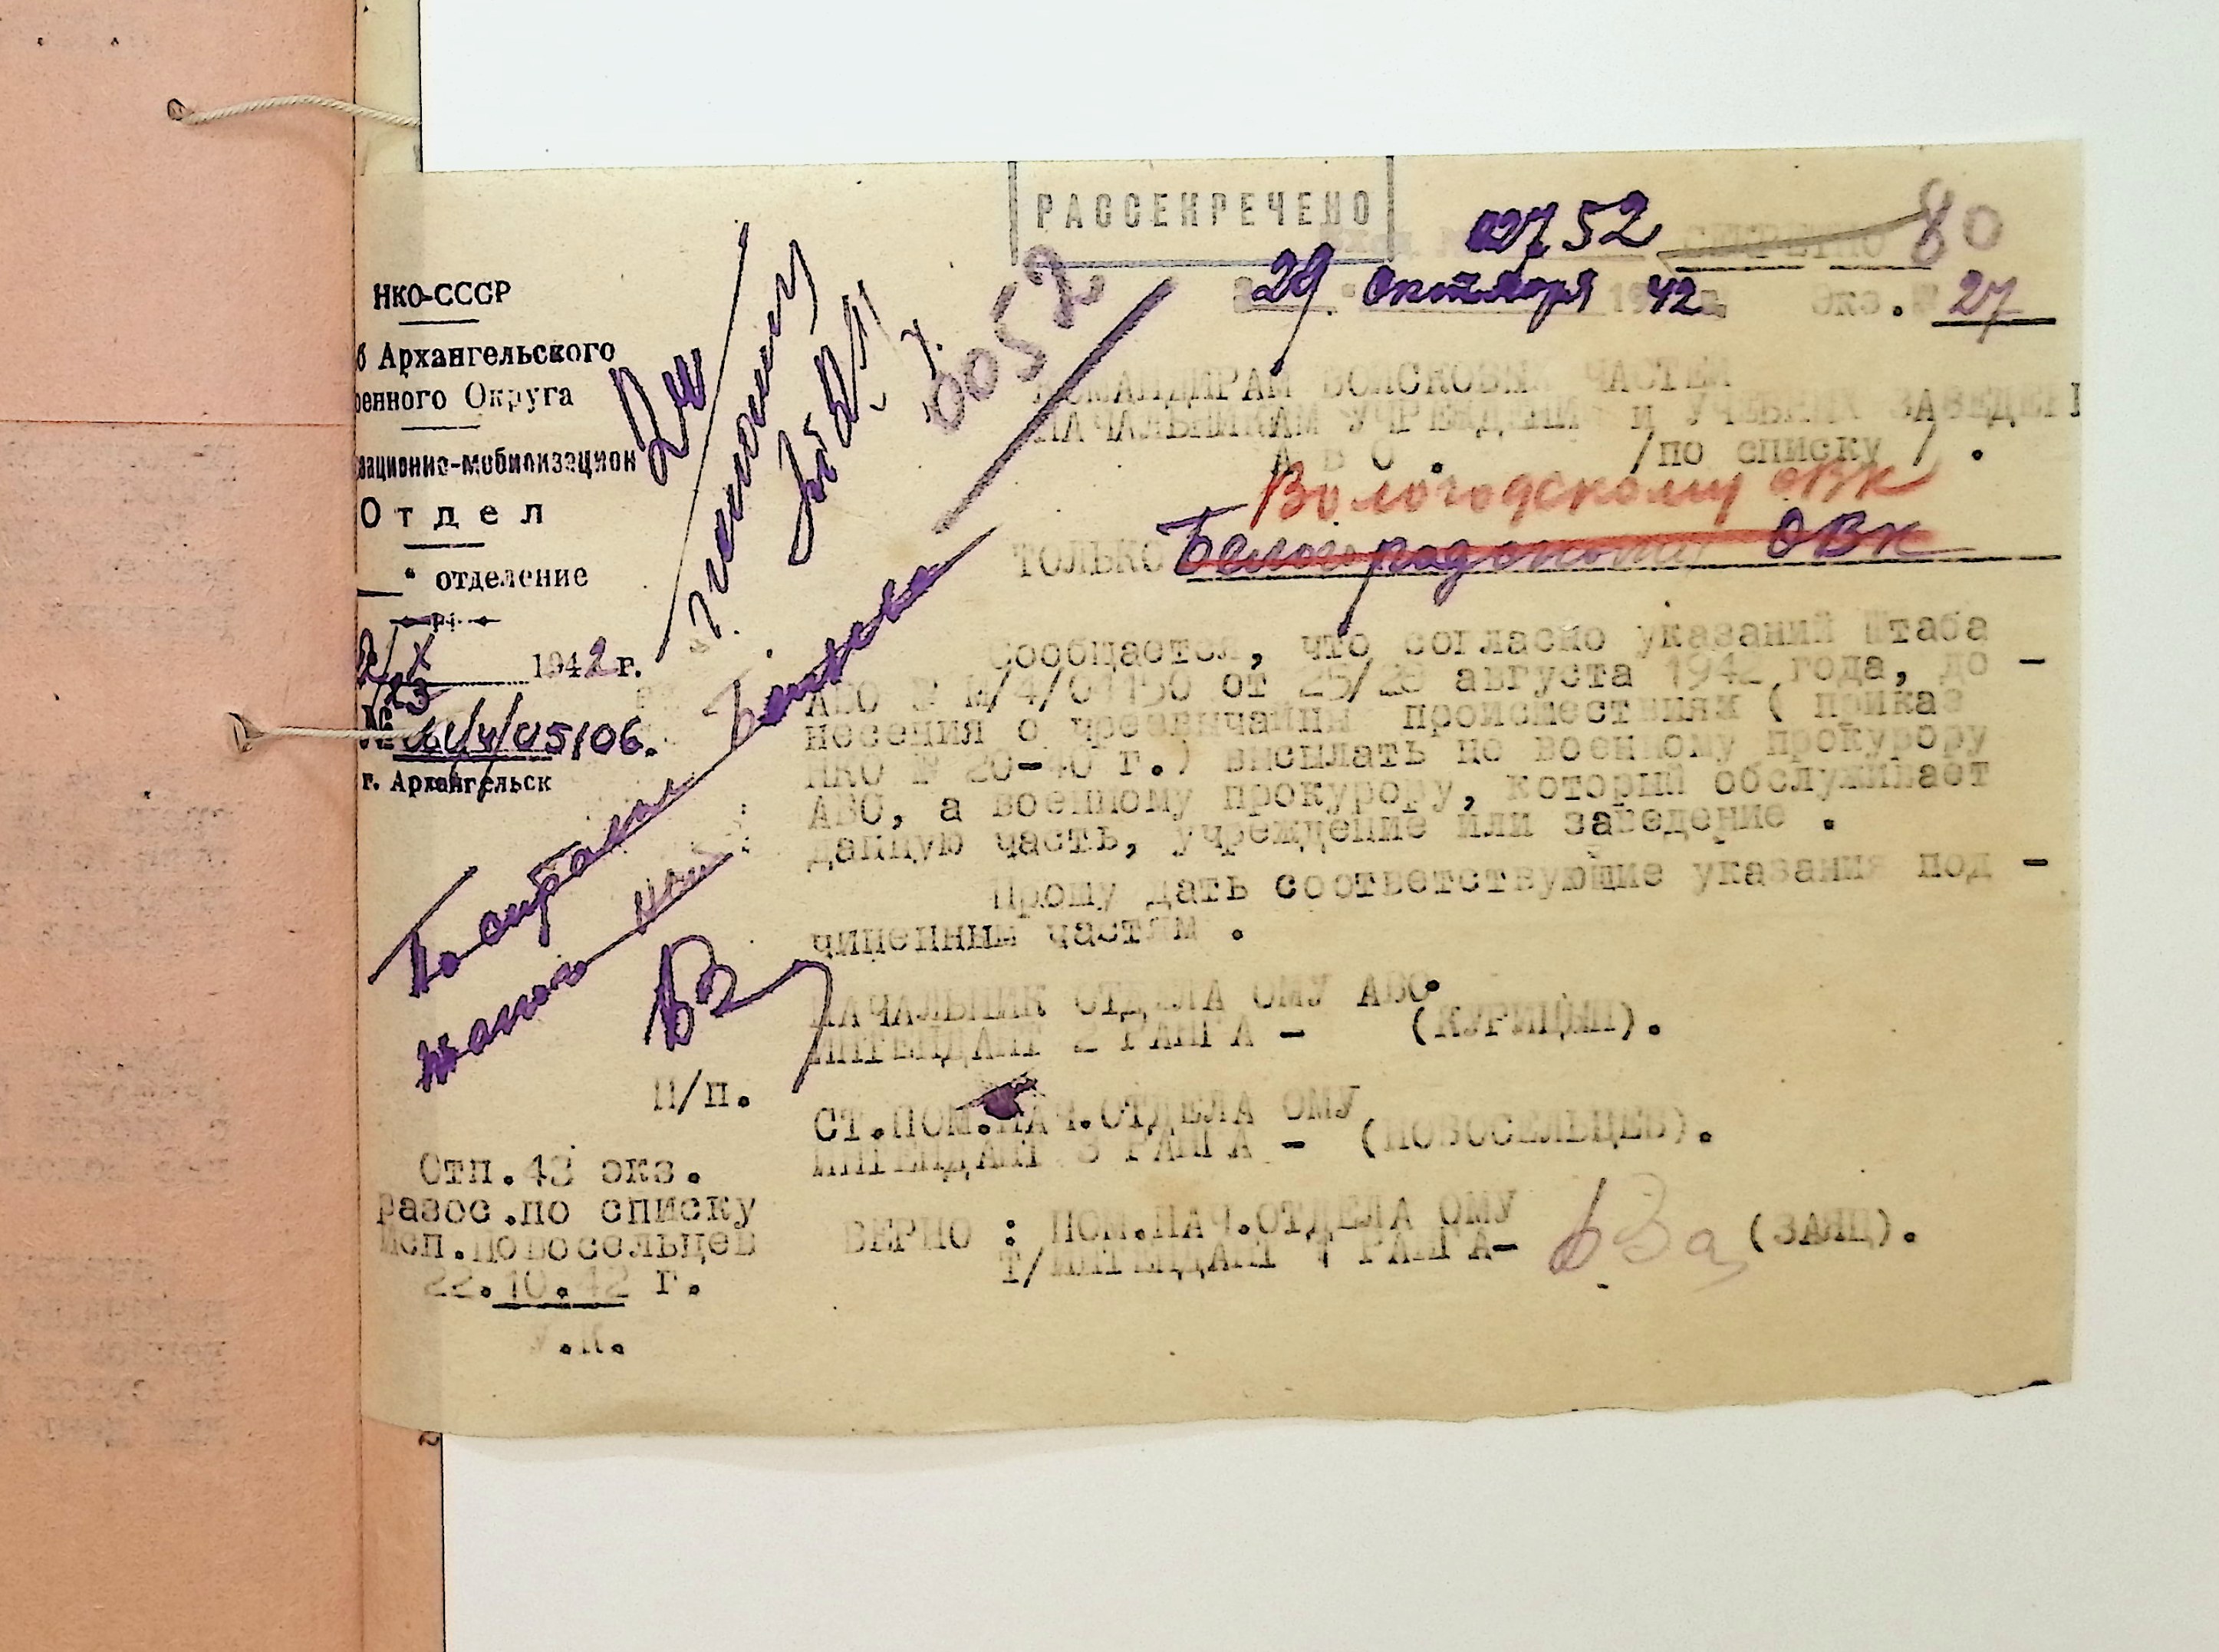 РАССЕКРЕЧЕНО
02752
СЕКРЕТНО
80
29 октября 1942 г.
Экз.№ 27
НКО-СССР
б Архангельского
енного Округа
ационно-мобилизацион
Отдел
" отделение
1942 г.
№ /4/05106.
г. Архангельск
0052
КОМАНДИРАМ ВОЙСКОВЫХ ЧАСТЕЙ
НАЧАЛЬНИКАМ УЧРЕЖДЕНИЙ и УЧЕБНЫХ ЗАВЕДЕН
А В О . /по списку / .
Вологодскому ОВК
ТОЛЬКО ОВК
Сообщается, что согласно указаний Штаба
АВО № М/4/04150 от 25/28 августа 1942 года, до -
несения о чрезвычайных происшествиях ( приказ
НКО № 20-40 г.) высылать не военному прокурору
АВО, а военному прокурору, который обслуживает
данную часть, учреждение или заведение .
Прошу дать соответствующие указания под -
чиненным частям .
НАЧАЛЬНИК ОТДЕЛА ОМУ АВО
ИНТЕНДАНТ 2 РАНГА - (КУРИЦЫН).
П/п.
СТ.ПОМ.НАЧ.ОТДЕЛА ОМУ
ИНТЕНДАНТ 3 РАНГА - (НОВОСЕЛЬЦЕВ).
ВЕРНО : ПОМ.НАЧ.ОТДЕЛА ОМУ
Т/ИНТЕНДАНТ 1 РАНГА- (ЗАЯЦ).
Отп.43 экз.
Разос.по списку
Исп.Новосельцев
22.10.42 г.
У.К.